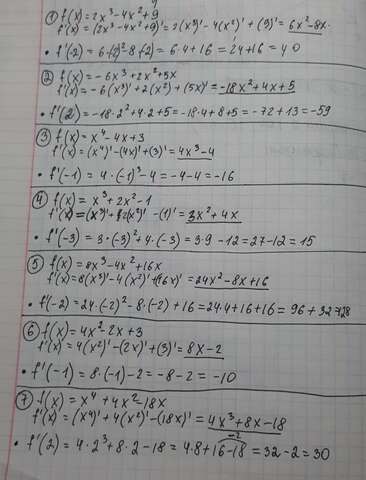 ① f(x) = 2x³-4x²+9
f'(x) = (2x³-4x²+9)' = 2(x³)' - 4(x²)' + (9)' = 6x²-8x.
• f'(-2) = 6·(-2)²-8·(-2) = 6·4+16 = 24+16 = 40
② f(x) = -6x³+2x²+5x
f'(x) = -6(x³)'+2(x²)+(5x)' = -18x²+4x+5
• f'(2) = -18·2²+4·2+5 = -18·4+8+5 = -72+13 = -59
③ f(x) = x⁴-4x+3
f'(x) = (x⁴)'-(4x)'+(3)' = 4x³-4
• f'(-1) = 4·(-1)³-4 = -4-4 = -16
④ f(x) = x³+2x²-1
f'(x) = (x³)'+2(x²)'-(1)' = 3x²+4x
• f'(-3) = 3·(-3)²+4·(-3) = 3·9-12 = 27-12 = 15
⑤ f(x) = 8x³-4x²+16x
f'(x) = 8(x³)'-4(x²)'+(16x)' = 24x²-8x+16
• f(-2) = 24·(-2)²-8·(-2)+16 = 24·4+16+16 = 96+32=128
⑥ f(x) = 4x²-2x+3
f'(x) = 4(x²)'-(2x)'+(3)' = 8x-2
• f'(-1) = 8·(-1)-2 = -8-2 = -10
⑦ f(x) = x⁴+4x²-18x
f'(x) = (x⁴)'+4(x²)'-(18x)' = 4x³+8x-18
-2
• f'(2) = 4·2³+8·2-18 = 4·8+16-18 = 32-2 = 30